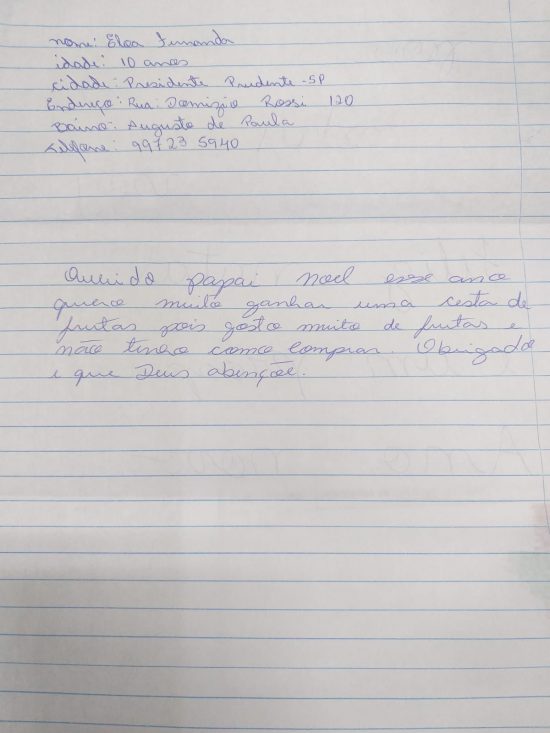 nome: Eloa Fernanda
idade: 10 anos
cidade: Presidente Prudente-SP
Endereço: Rua: Domizio Rossi 120
Bairro: Augusto de Paula
Telefone: 99723 5940
Querido papai noel esse ano
quero muito ganhar uma cesta de
frutas pois gosto muito de frutas e
não tenho como comprar. Obrigado
e que Deus abençõe.